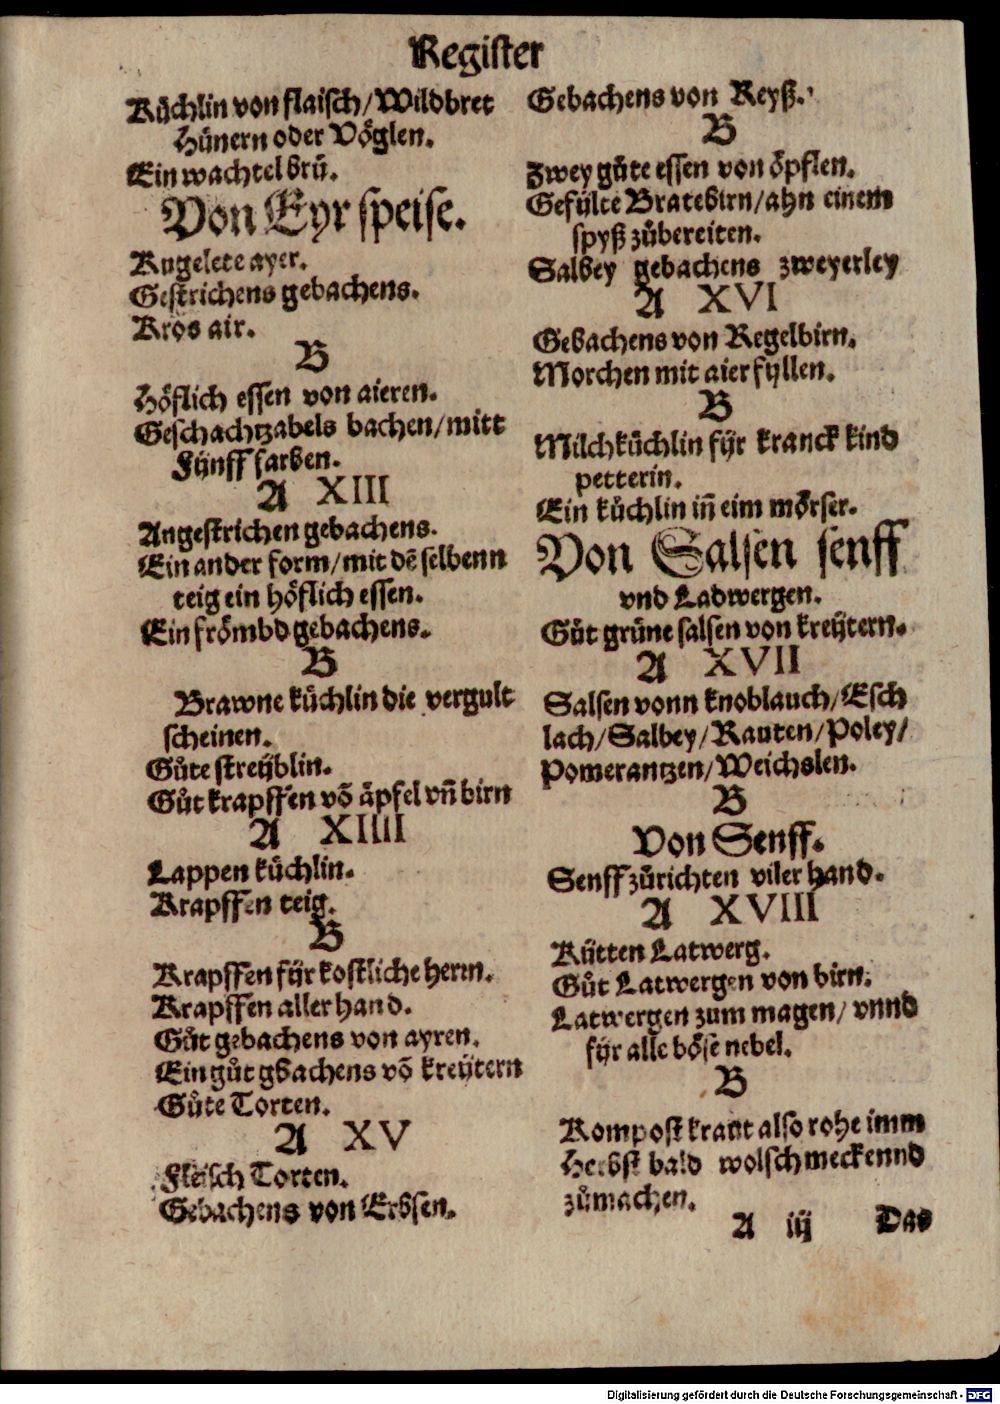 Register
Kuͤchlin von flaisch/Wildbret
Huͤnern oder Voͤglen.
Ein wachtel bruͤ.
Von Eyr speise.
Kugelete ayer.
Gestrichens gebachens.
Kroͤs air.
B
Hoͤflich essen von aieren.
Geschachtzabels bachen/mitt
Fÿnff farben.
A XIII
Angestrichen gebachens.
Ein ander form/mit dẽ selbenn
teig ein hoͤflich essen.
Ein froͤmbd gebachens.
B
Brawne kuͤchlin die vergult
scheinen.
Guͤte streÿblin.
Guͤt krapffen võ aͤpfel vñ birn
A XIIII
Lappen kuͤchlin.
Krapffen teig.
B
Krapffen fÿr kostliche herrn.
Krapffen aller hand.
Guͤt gebachens von ayren.
Ein guͤt gbachens võ kreÿtern
Guͤte Torten.
A XV
Fleisch Torten.
Gebachens von Erbsen.
Gebachens von Reyß.
B
Zwey guͤte essen von oͤpflen.
Gefÿlte Bratebirn/ahn einem
spyß zuͤbereiten.
Salbey gebachens zweyerley
A XVI
Gebachens von Regelbirn.
Morchen mit aier fÿllen.
B
Milchkuͤchlin fÿr kranck kind
petterin.
Ein kuͤchlin iñ eim moͤrser.
Von Salsen senff
vnd Ladwergen.
Guͤt gruͤne salsen von kreÿtern.
A XVII
Salsen vonn knoblauch/Esch
lach/Salbey/Rauten/Poley/
Pomerantzen/Weichslen.
B
Von Senff.
Senff zuͤrichten viler hand.
A XVIII
Kÿtten Latwerg.
Guͤt Latwergen von birn.
Latwergen zum magen/ vnnd
fÿr alle boͤse nebel.
B
Kompost kraut also rohe imm
Herbst bald wolschmeckennd
zuͤmachen.
A iij Das
Digitalisierung gefördert durch die Deutsche Forschungsgemeinschaft - DFG